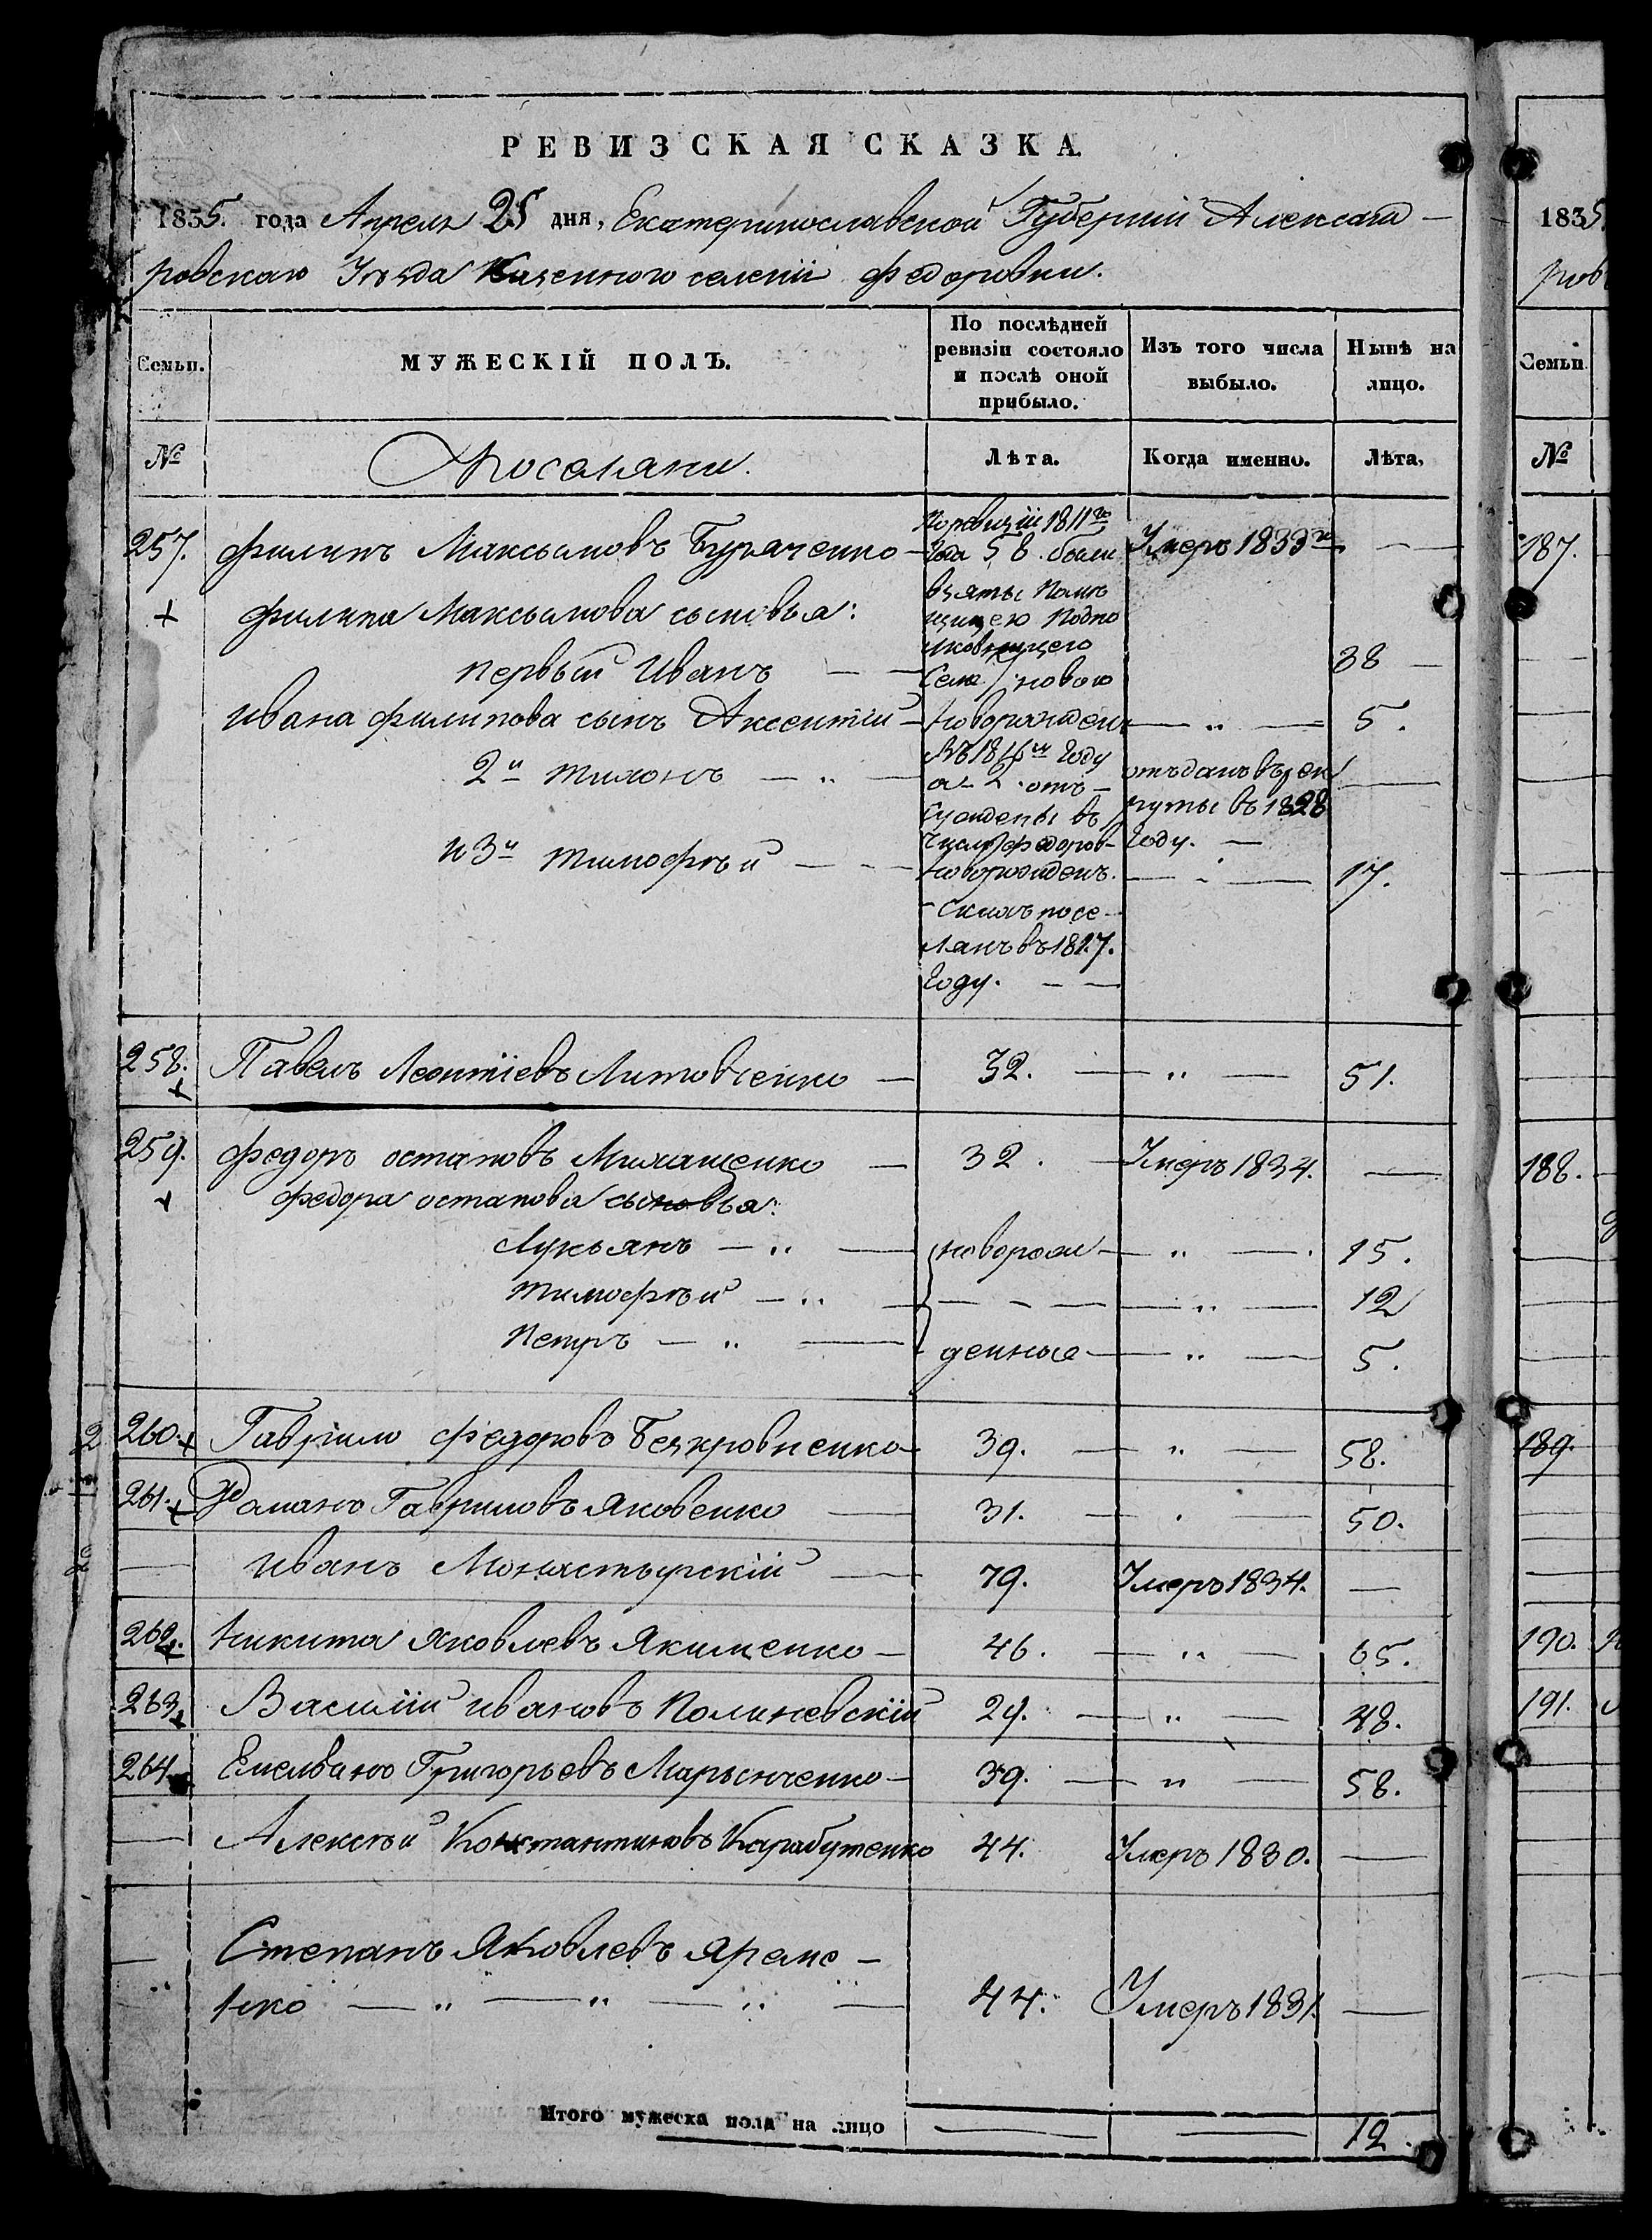 РЕВИЗСКАЯ СКАЗКА.
1835. года Апреля 25 дня, Екатеринославской Губернии Александ-
ровскаго Уезда Казенного селения Федоровки.
Семьи.
МУЖЕСКІЙ ПОЛЪ.
По послѣдней ревизіи состояло и послѣ оной прибыло.
Изъ того числа выбыло.
Нынѣ на лицо.
№
Поселяни.
Лѣта.
Когда именно.
Лѣта,
257. Филипъ Максымовъ Бурaченко — По ревизіи 1811го года 58. были Умеръ 1833го —
Филипа Максымова сыновья: взяты Поме
первый Иванъ — — 38 —
Села новою
Ивана Филипова сынъ Аксентій — новорожден — „ — 5.
2й Тихонъ — „ — въ 1816м году а-2. отъ- отъданъ въ рек —
суждены въ руты въ 1828
число Федоров- году. —
и 3й Тимофѣй — — новорожденъ. — „ — 17.
скихъ посе-
лянъ въ 1817.
году. — —
258. Павелъ Леонтіевъ Литовченко — 32. — „ — 51.
259. Федоръ остаповъ Милащенко — 32. — Умеръ 1834. —
Федора остапова сыновья:
Лукьянъ — „ — новорож — „ — 15.
Тимофѣй — „ — — — — — „ — 12
Петръ — „ — денные — „ — 5.
260. Гаврило Федоровъ Безкровненко — 39. — „ — 58.
261. Романъ Гавриловъ Яковенко — 31. — „ — 50.
— Иванъ Монастырскій — 79. Умеръ 1834. —
262. Никита Яковлевъ Якименко — 46. — „ — 65.
263. Василій Ивановъ Полиневскій 29. — „ — 48.
264. Емельянъ Григорьевъ Марынченко — 39. — „ — 58.
— Алексѣй Константиновъ Карабутенко 44. Умеръ 1830. —
— Степанъ Яковлевъ Яреме-
нко — „ — „ — „ — 44. Умеръ 1831. —
Итого мужеска пола на лицо — — 12.
1835.
ров
Семьи
№
187.
188.
189.
190.
191.